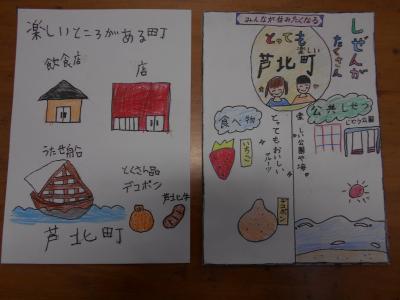 楽しいところがある町
飲食店
店
うたせ船
とくさん品
デコポン
芦北牛
芦北町
みんなが住みたくなる
とっても楽しい
芦北町
しぜんが
たくさん
食べ物
いちご
とってもおいしい
フルーツ
デコポン
公共しせつ
楽しい公園や海